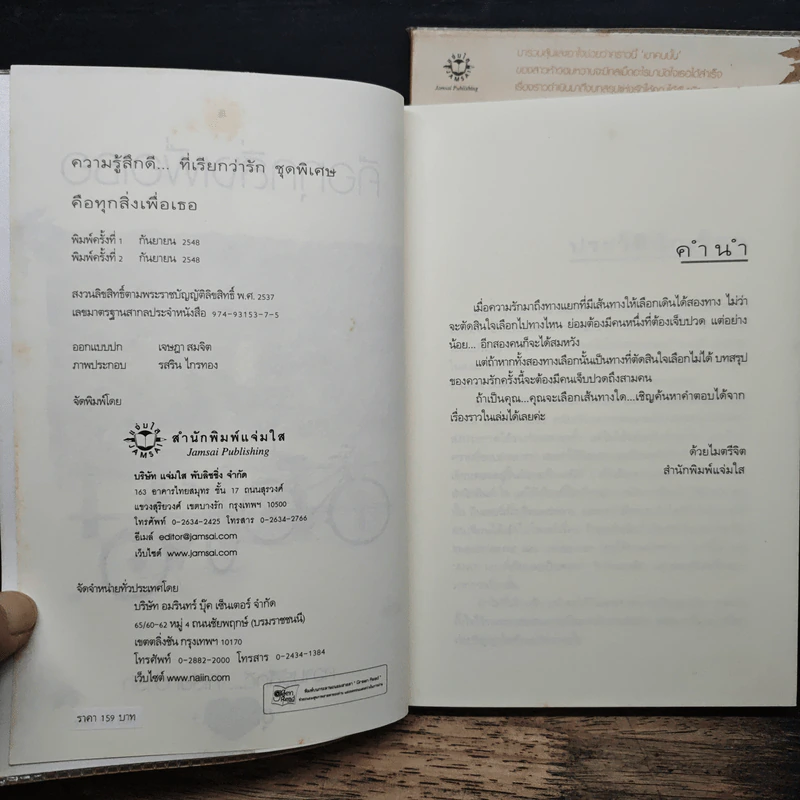 ความรู้สึกดี... ที่เรียกว่ารัก ชุดพิเศษ
คือทุกสิ่งเพื่อเธอ
พิมพ์ครั้งที่ 1 กันยายน 2548
พิมพ์ครั้งที่ 2 กันยายน 2548
สงวนลิขสิทธิ์ตามพระราชบัญญัติลิขสิทธิ์ พ.ศ. 2537
เลขมาตรฐานสากลประจำหนังสือ 974-93153-7-5
ออกแบบปก เจษฎา สมจิต
ภาพประกอบ รสริน ไกรทอง
จัดพิมพ์โดย
แจ่มใส
JAMSAI
สำนักพิมพ์แจ่มใส
Jamsai Publishing
บริษัท แจ่มใส พับลิชชิ่ง จำกัด
163 อาคารไทยสมุทร ชั้น 17 ถนนสุรวงศ์
แขวงสุริยวงศ์ เขตบางรัก กรุงเทพฯ 10500
โทรศัพท์ 0-2634-2425 โทรสาร 0-2634-2766
อีเมล์ editor@jamsai.com
เว็บไซต์ www.jamsai.com
จัดจำหน่ายทั่วประเทศโดย
บริษัท อมรินทร์ บุ๊ค เซ็นเตอร์ จำกัด
65/60-62 หมู่ 4 ถนนชัยพฤกษ์ (บรมราชชนนี)
เขตตลิ่งชัน กรุงเทพฯ 10170
โทรศัพท์ 0-2882-2000 โทรสาร 0-2434-1384
เว็บไซต์ www.naiin.com
ราคา 159 บาท
Jamsai Publishing
คำนำ
เมื่อความรักมาถึงทางแยกที่มีเส้นทางให้เลือกเดินได้สองทาง ไม่ว่า
จะตัดสินใจเลือกไปทางไหน ย่อมต้องมีคนหนึ่งที่ต้องเจ็บปวด แต่อย่าง
น้อย... อีกสองคนก็จะได้สมหวัง
แต่ถ้าหากทั้งสองทางเลือกนั้นเป็นทางที่ตัดสินใจเลือกไม่ได้ บทสรุป
ของความรักครั้งนี้จะต้องมีคนเจ็บปวดถึงสามคน
ถ้าเป็นคุณ...คุณจะเลือกเส้นทางใด...เชิญค้นหาคำตอบได้จาก
เรื่องราวในเล่มได้เลยค่ะ
ด้วยไมตรีจิต
สำนักพิมพ์แจ่มใส